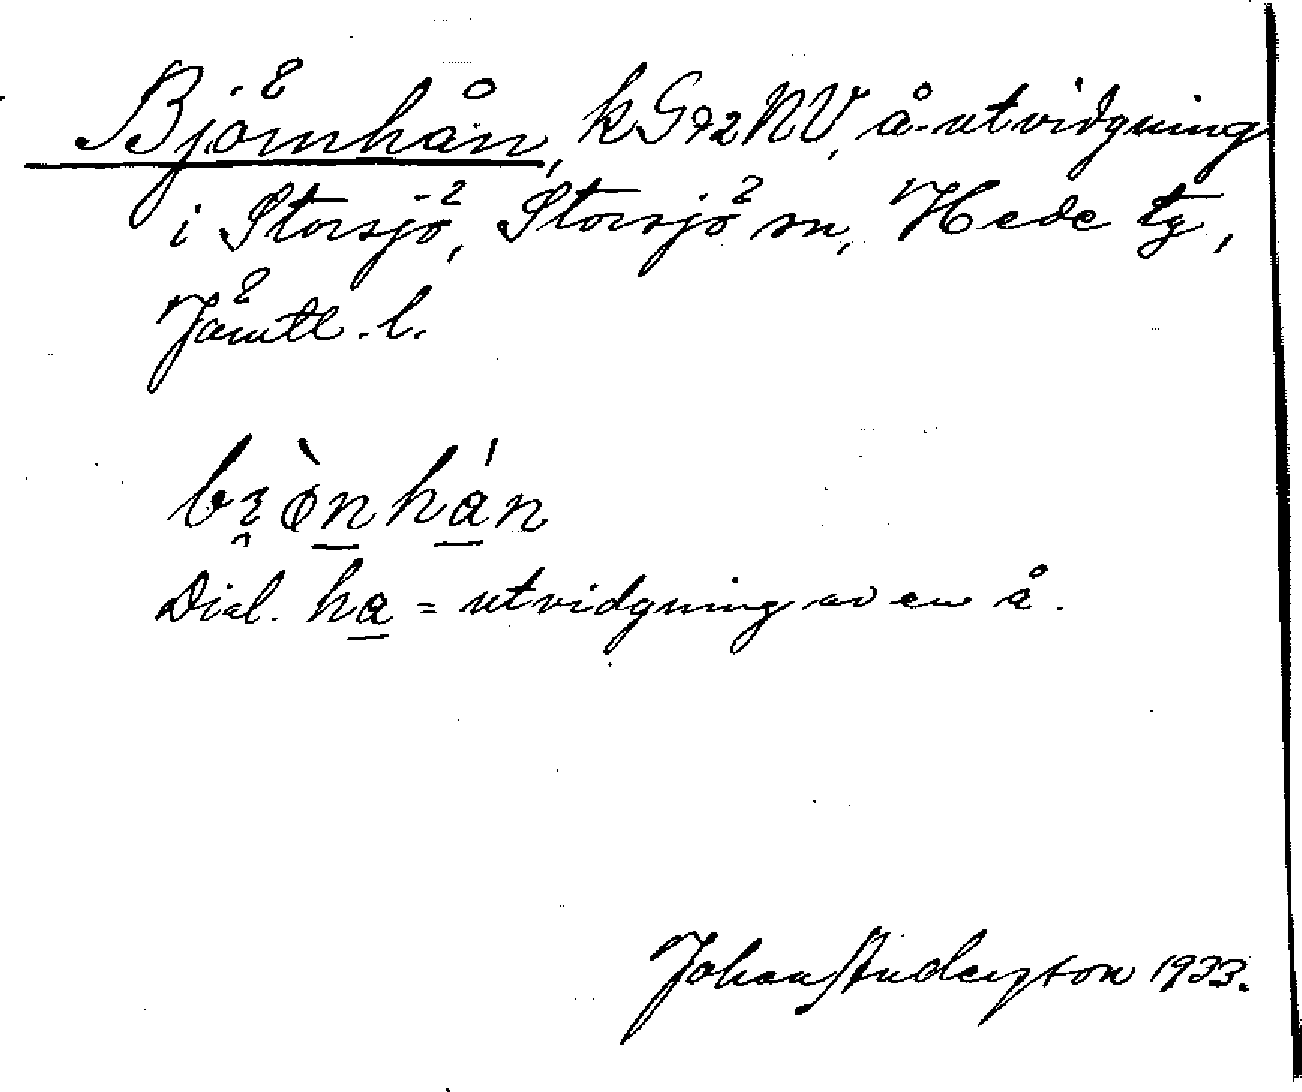 Björnhån, kG92NV, å-utvidgning
i Storsjö, Storsjö sn, Hede tg,
Jämtl. l.
Dial. ha = utvidgning av en å.
Johan Anderzson 1933.